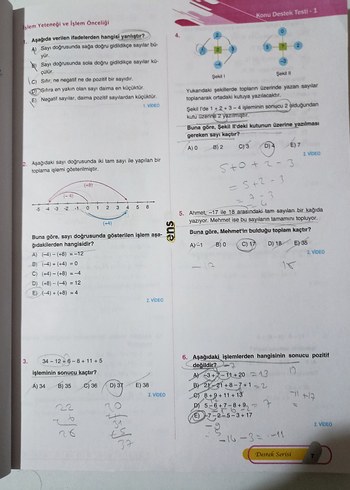 İşlem Yeteneği ve İşlem Önceliği
Konu Destek Testi - 1
1. Aşağıda verilen ifadelerden hangisi yanlıştır?
A) Sayı doğrusunda sağa doğru gidildikçe sayılar büyür.
B) Sayı doğrusunda sola doğru gidildikçe sayılar küçülür.
C) Sıfır; ne negatif ne de pozitif bir sayıdır.
D) Sıfıra en yakın olan sayı daima en küçüktür.
E) Negatif sayılar, daima pozitif sayılardan küçüktür.
1. VİDEO
2. Aşağıdaki sayı doğrusunda iki tam sayı ile yapılan bir
toplama işlemi gösterilmiştir.
(+8)
-5 -4 -3 -2 -1 0 1 2 3 4 5 6
(+4)
Buna göre, sayı doğrusunda gösterilen işlem aşağıdakilerden hangisidir?
A) (-4) - (+8) = -12
B) (-4) + (+4) = 0
C) (+4) - (+8) = -4
D) (+8) - (-4) = 12
E) (-4) + (+8) = 4
2. VİDEO
3. 34 - 12 + 6 - 8 + 11 + 5
işleminin sonucu kaçtır?
A) 34 B) 35 C) 36 D) 37 E) 38
3. VİDEO
22
26
20
37
ens
4.
Şekil I
Şekil II
Yukarıdaki şekillerde topların üzerinde yazan sayılar
toplanarak ortadaki kutuya yazılacaktır.
Şekil I'de 1 + 2 + 3 - 4 işleminin sonucu 2 olduğundan
kutu üzerine 2 yazılmıştır.
Buna göre, Şekil II'deki kutunun üzerine yazılması
gereken sayı kaçtır?
A) 0 B) 2 C) 3 D) 4 E) 7
5+0+2-3
= 5+2-3
5. Ahmet, -17 ile 18 arasındaki tam sayıları bir kağıda
yazıyor. Mehmet ise bu sayıların tamamını topluyor.
Buna göre, Mehmet'in bulduğu toplam kaçtır?
A) -1 B) 0 C) 17 D) 18 E) 35
5. VİDEO
-17
6. Aşağıdaki işlemlerden hangisinin sonucu pozitif
değildir?
A) -3 + 7 - 11 + 20
B) 21 - 21 + 8 - 7 + 1
C) 8 + 9 + 11 + 13
D) 5 - 6 + 7 - 8 + 9
E) -7 - 2 - 5 - 3 + 17
6. VİDEO
-14-3=-11
Destek Serisi